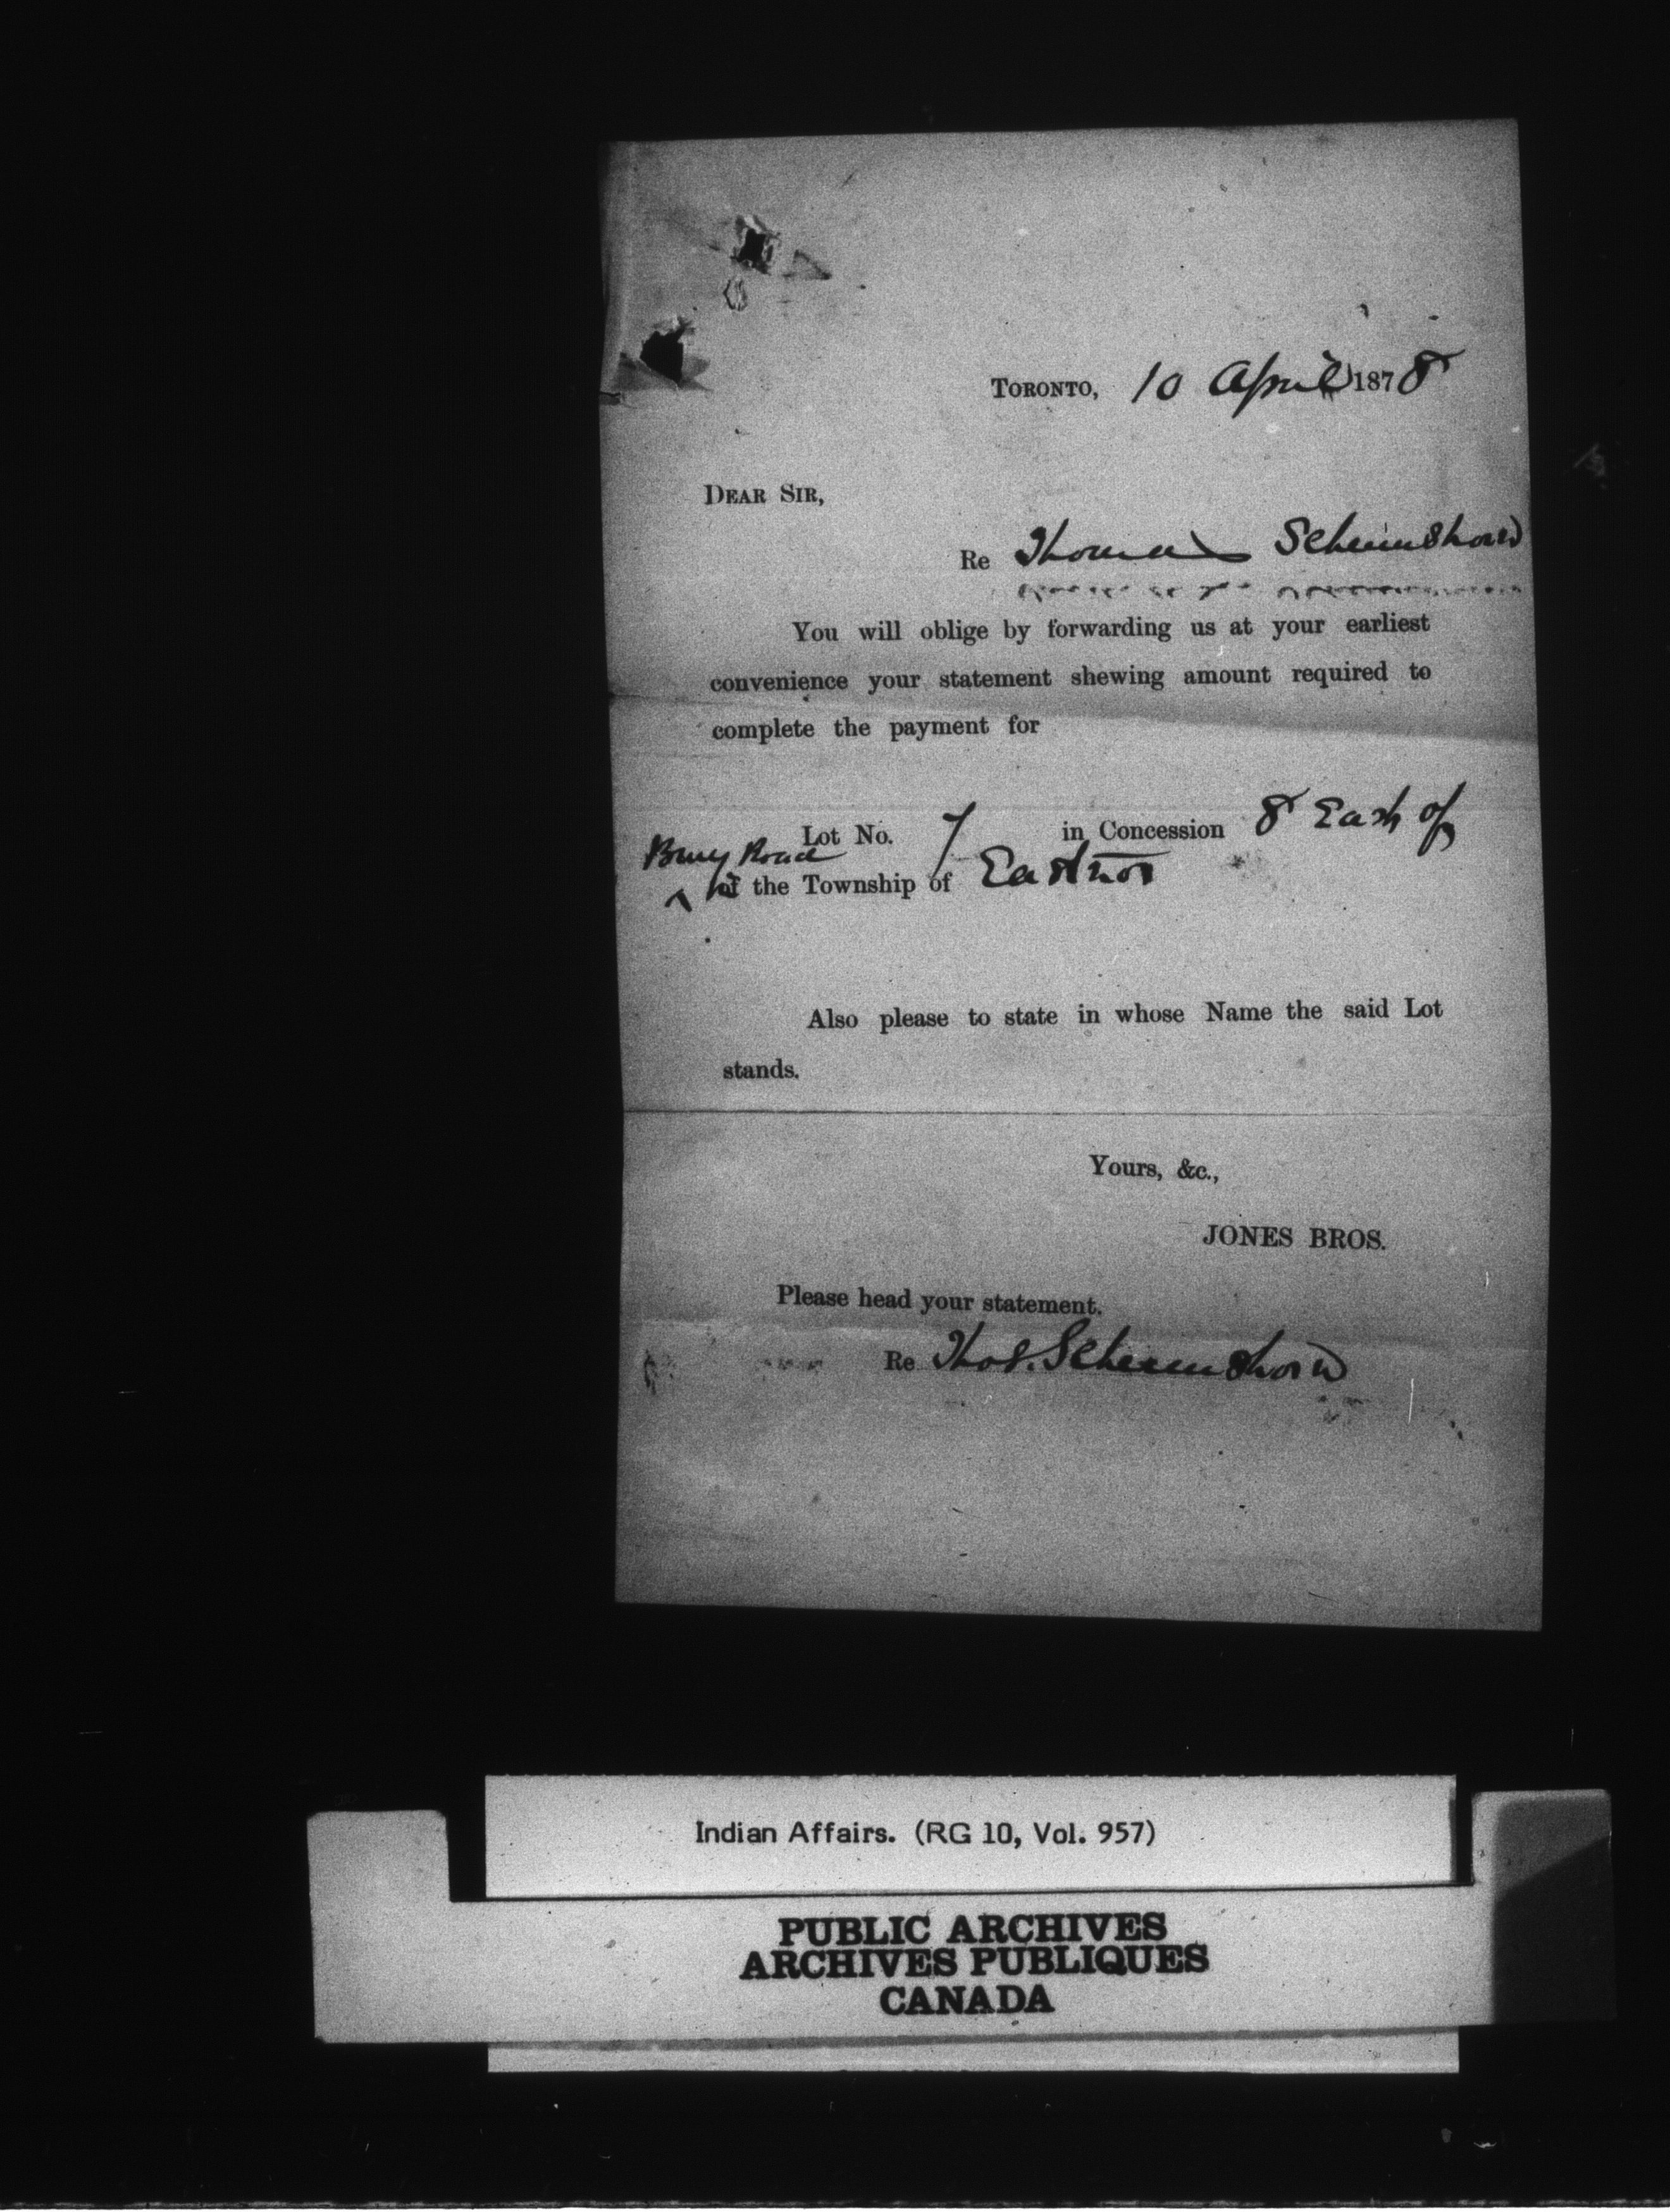 TORONTO, 10 April 1878
DEAR SIR,
Re Thomas
You will oblige by forwarding us at your earliest
convenience your statement shewing amount required to
complete the payment for
Lot No. 7 in Concession 8 East of
Bury Road
^ in the Township of Eastnor
Also please to state in whose Name the said Lot
stands.
Yours, &c.,
JONES BROS.
Please head your statement.
Re Thos.
Indian Affairs. (RG 10, Vol. 957)
PUBLIC ARCHIVES
ARCHIVES PUBLIQUES
CANADA